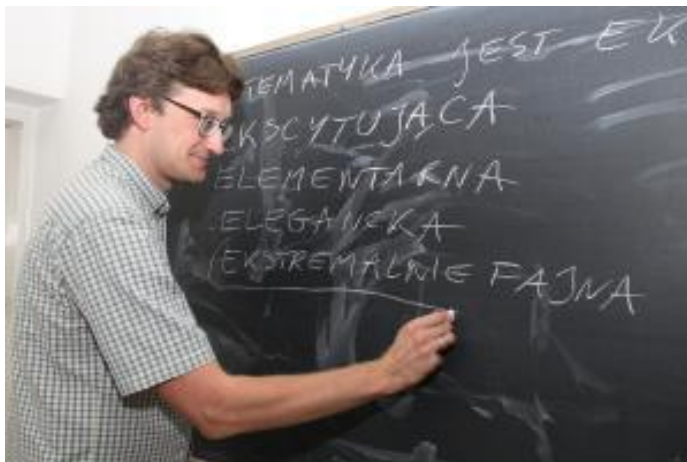 TEMATYKA JEST EK
KSCYTUJĄCA
ELEMENTARNA
ELEGANCKA
EKSTREMALNIE FAJNA